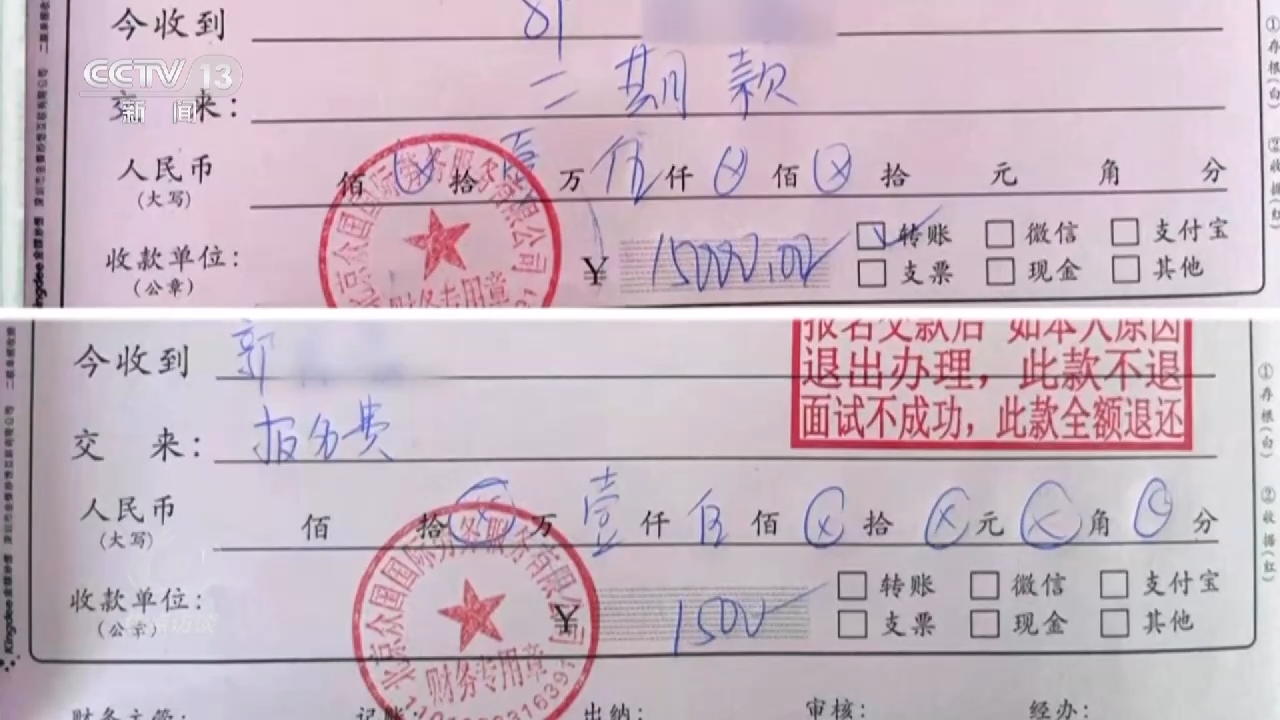 CCTV 13
新闻
今收到
交 来: 二期款
人民币 佰 ⊗ 拾 壹 万 伍 仟 ⊗ 佰 ⊗ 拾 元 角 分
(大写)
收款单位: ¥ 15000.00 转账 微信 支付宝
(公章) 支票 现金 其他
北京众国国际劳务服务有限公司
财务专用章
①存根(白) ②收据(红)
报名交款后 如本人原因
退出办理,此款不退
面试不成功,此款全额退还
今收到 郭
交 来: 报名费
人民币 佰 拾 ⊗ 万 壹 仟 伍 佰 ⊗ 拾 ⊗ 元 ⊗ 角 分
(大写)
收款单位: ¥ 1500 转账 微信 支付宝
(公章) 支票 现金 其他
北京众国国际劳务服务有限公司
财务专用章
①存根(白) ②收据(红)
Kingdee
财务主管: 记账: 出纳: 审核: 经办: